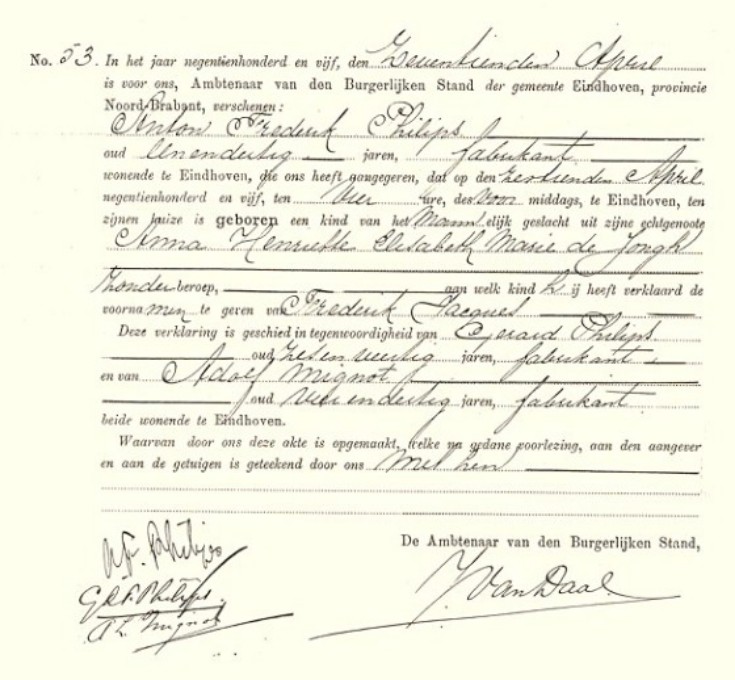 No. 53. In het jaar negentienhonderd en vijf, den Zeventienden April
is voor ons, Ambtenaar van den Burgerlijken Stand der gemeente Eindhoven, provincie
Noord-Brabant, verschenen:
Anton Frederik Philips
oud Eenendertig jaren, fabrikant
wonende te Eindhoven, die ons heeft aangegeven, dat op den zestienden April
negentienhonderd en vijf, ten vier ure, des voor middags, te Eindhoven, ten
zijnen huize is geboren een kind van het Mann elijk geslacht uit zijne echtgenoote
Anna Henriette Elisabeth Maria de Jongh
Zonder beroep, aan welk kind h ij heeft verklaard de
voornamen te geven van Frederik Jacques
Deze verklaring is geschied in tegenwoordigheid van Gerard Philips
oud zesenveertig jaren, fabrikant
en van Adolf Mignot
oud Vier endertig jaren, fabrikant
beide wonende te Eindhoven.
Waarvan door ons deze akte is opgemaakt, welke na gedane voorlezing, aan den aangever
en aan de getuigen is geteekend door ons met hen
De Ambtenaar van den Burgerlijken Stand,
A.F. Philips
G.L.F. Philips
A. L. Mignot
J. Van Daal